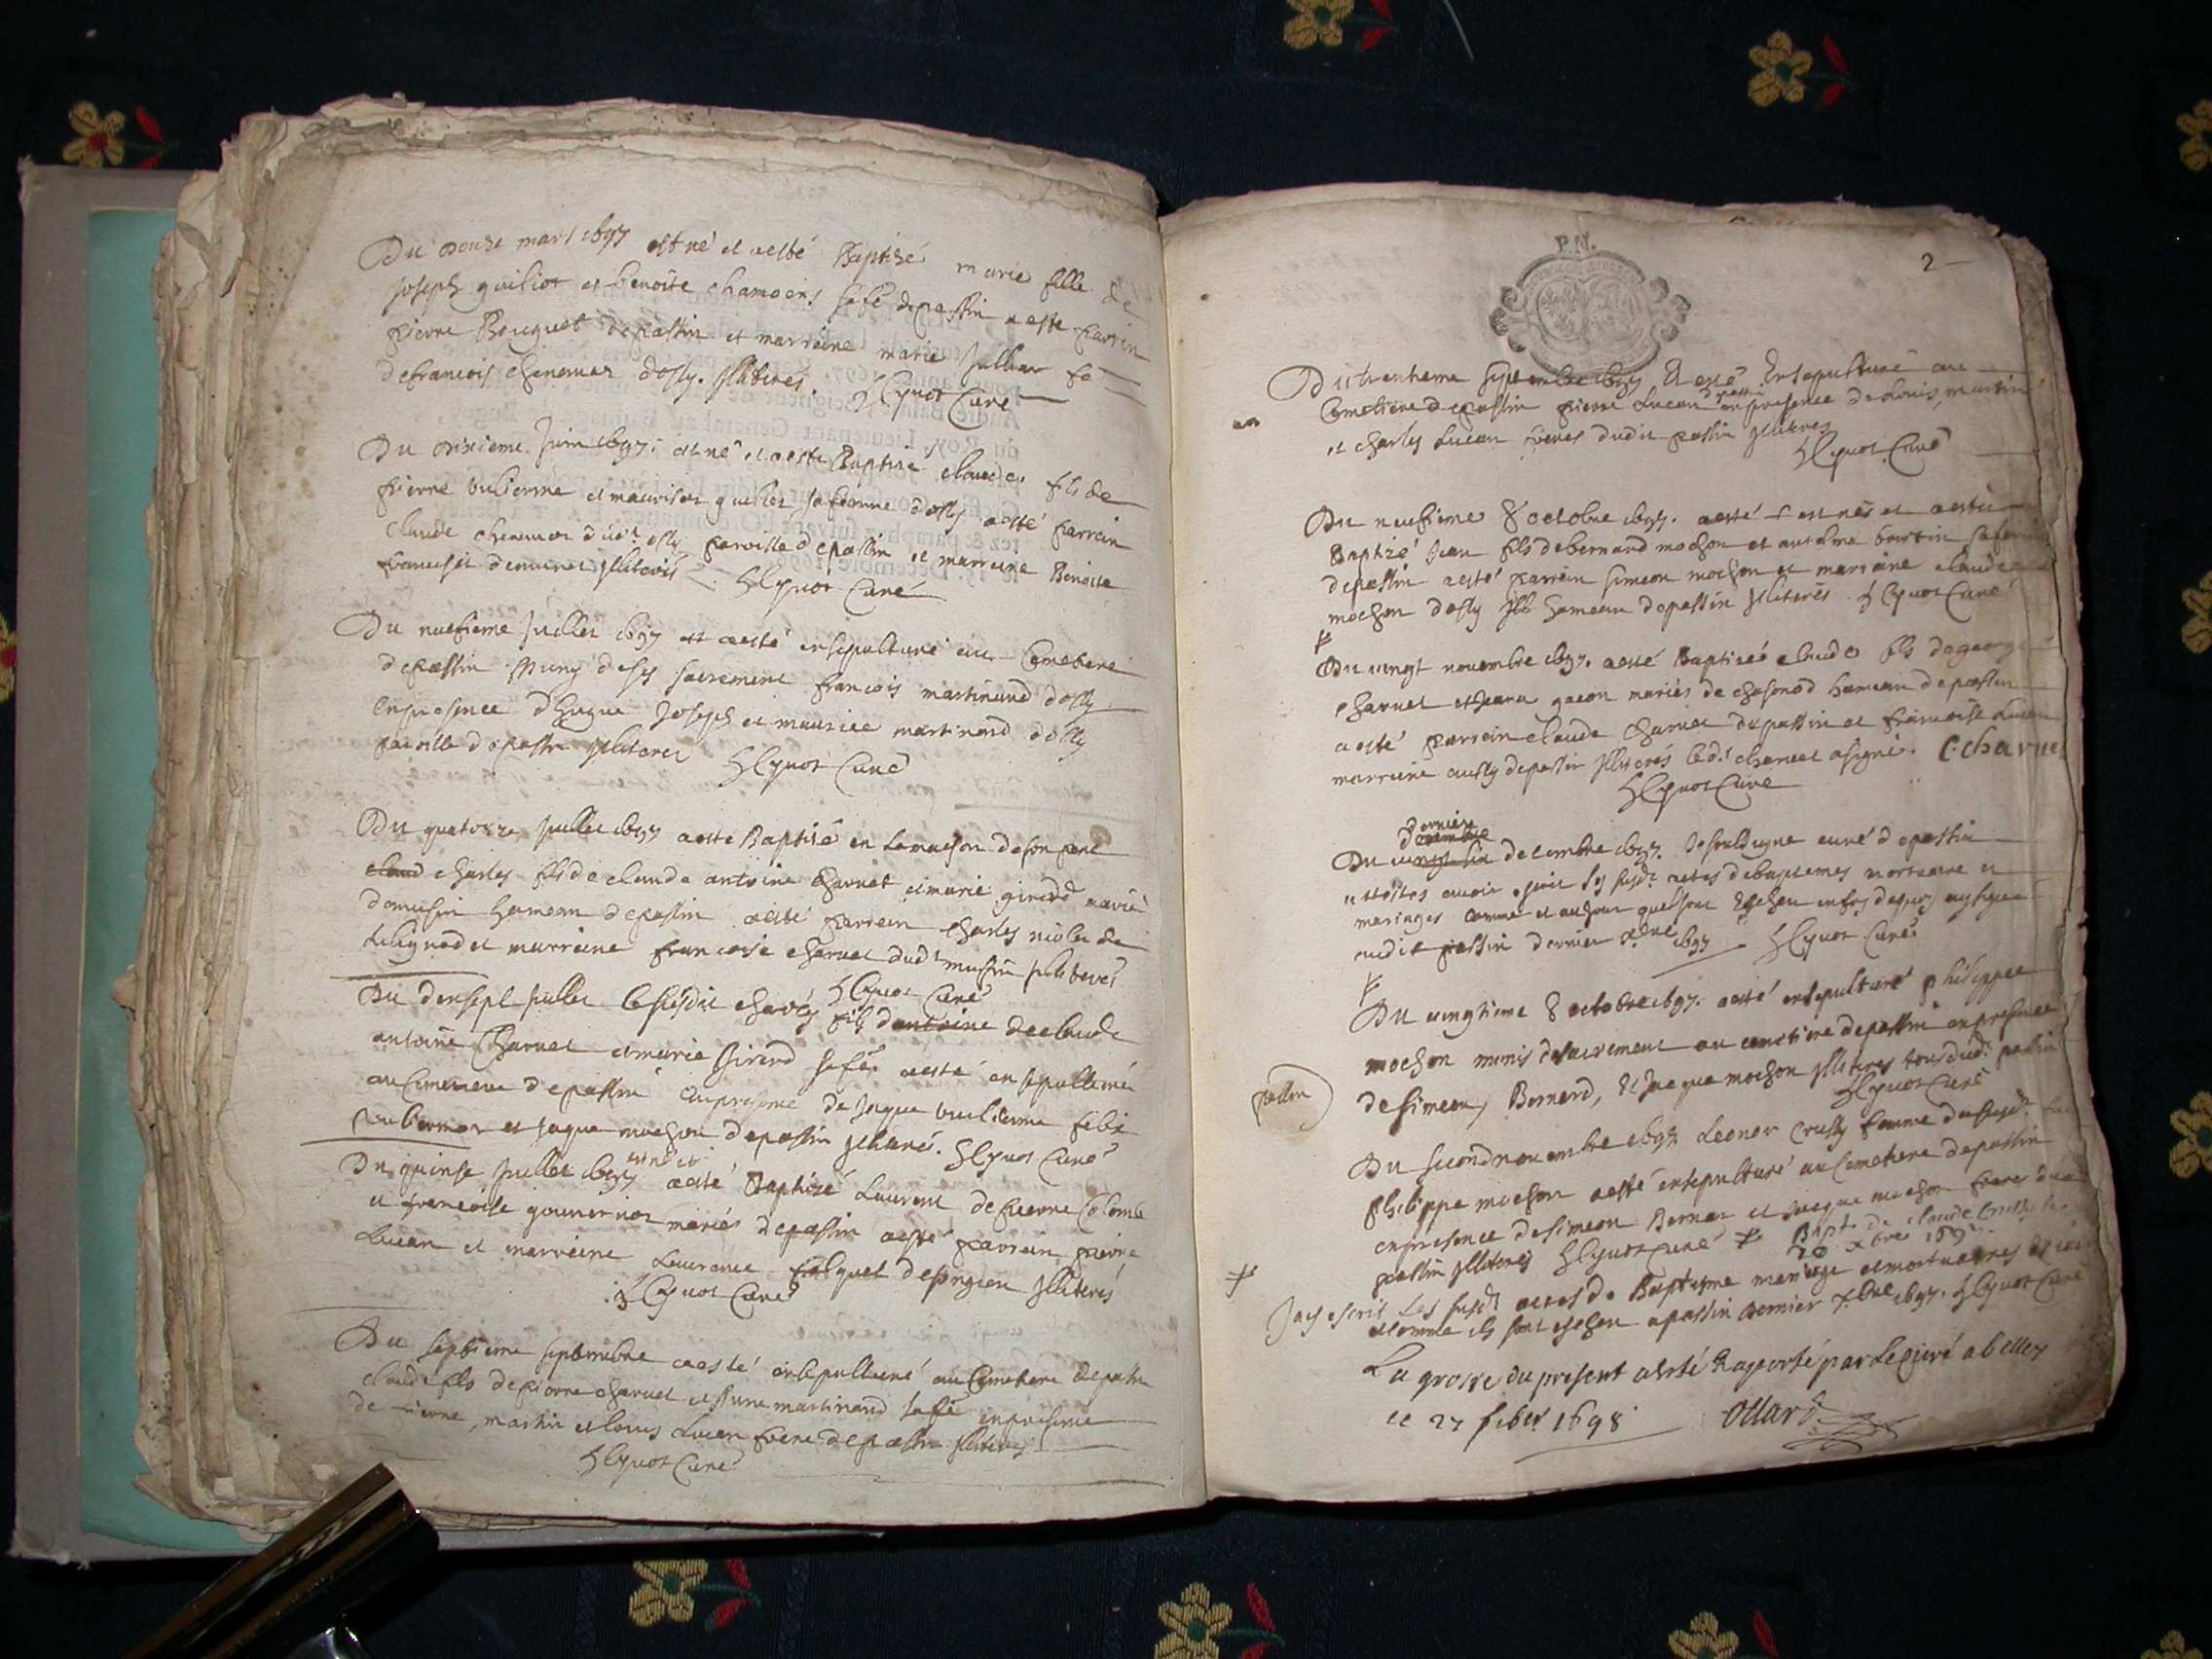 Du douze mars 1697 est né et a esté Baptisé marie fille de
Joseph guiliot et benoite chamoens sa fe de passin a este parrin
pierre Bouguet de passin et marraine marie Jullian fe
de francois chenemer dosly. Illiteres. HLyuot Curé
Du dixieme Juin 1697. est né et a este Baptisé claude fils de
pierre vulierme et maurise guillet sa femme dosly a esté parrain
claude chenemer dud.t osly parroisse de passin et marreine Benoite
francoise Illiteres HLyuot Curé
Du neufieme Juillet 1697 a esté ensepulturé au Cemetiere
de passin muny de ses sacrement francois martinand dosly
en presence d'hugue Joseph et maurice martinand dosly
paroisse de passin Illiteres HLyuot Curé
Du quatorze Juillet 1697 a este Baptisé en la maison de son pere
claud charles fils de claude antoine charuet et marie girerd mariés
de musin hameau de passin a esté parrein charles niolet de
et marreine francoise charuet dud.t musin Illiteres
HLyuot Curé
Du dixsept Juillet le susdit charles fils dantoine de claude
antoine Charuet et marie Girerd sa fe. a esté ensepulturé
au Cemetiere de passin en presence de Jaque vuillerme felix
et Jaque mochon de passin Illiteres. HLyuot Curé
est né et
Du quinse Juillet 1697 a esté Baptisé Laurent de pierre Colomb
et francoise mariés de passin a esté parrein pierre
Lucan et marreine Laurence de songieu Illiteres
HLyuot Curé
Du septieme septembre a esté ensepulturé au Cemetiere de passin
claude fils de pierre charuet et martinand sa fe en presence
de pierre, martin et louis Lucan frere de passin Illiteres
HLyuot Curé
P.N.
2
Du trentieme septembre 1697 A esté Ensepulturé au
Cemetiere de passin pierre Lucan en presence de Louis, martin
et charles Lucan freres dudit passin Illiteres
HLyuot Curé
Du neufieme 8 octobre 1697. a esté est nés et a esté
Baptizé Jean fils de bernard mochon et antelma sa femme
de passin a esté parrein simeon mochon et marraine claude
mochon dosly hameau de passin Illiterés. HLyuot Curé
Du vingt novembre 1697. a esté Baptizé claude fils de george
charuet et Jeana gaeon mariés de chosonod hameau de passin
a esté parrein claude Charuet de passin et francoise Lucan
marreine aussy de passin Illiterés led.t charuet a signé. C. charuet
HLyuot Curé
derniere
decembre
Du vingt six decembre 1697. Je soussigné curé de passin
atteste avoir escrit les susd.ts actes de baptemes mortuaire et
mariages comme et au jour quel sont Eschou en foy de quoy ay signé
audit passin dernier xbre 1697 HLyuot Curé
Du vingtieme 8 octobre 1697. a esté ensepulturé philippe
mochon munis de sacrement au cemetiere de passin en presence
passin
de simeon, Bernard, et Jaque mochon Illiteres tous dud.t passin
HLyuot Curé
Du second novembre 1697 Leonor Crussy femme du susd.t
philippe mochon a esté ensepulturé au Cemetiere de passin
en presence de simeon Bernar et Jacque mochon freres
passin Illiteres HLyuot Curé Bapt. de claude Crussy
20 xbre 1697
Jay escrit Les susd.ts actes de Baptesme mariage et mortuaires
et comme ils sont eschou a passin dernier xbre 1697. HLyuot Curé
La grosse du present a esté Raporté par Le Curé a belley
ce 27 feber 1698 Ollard